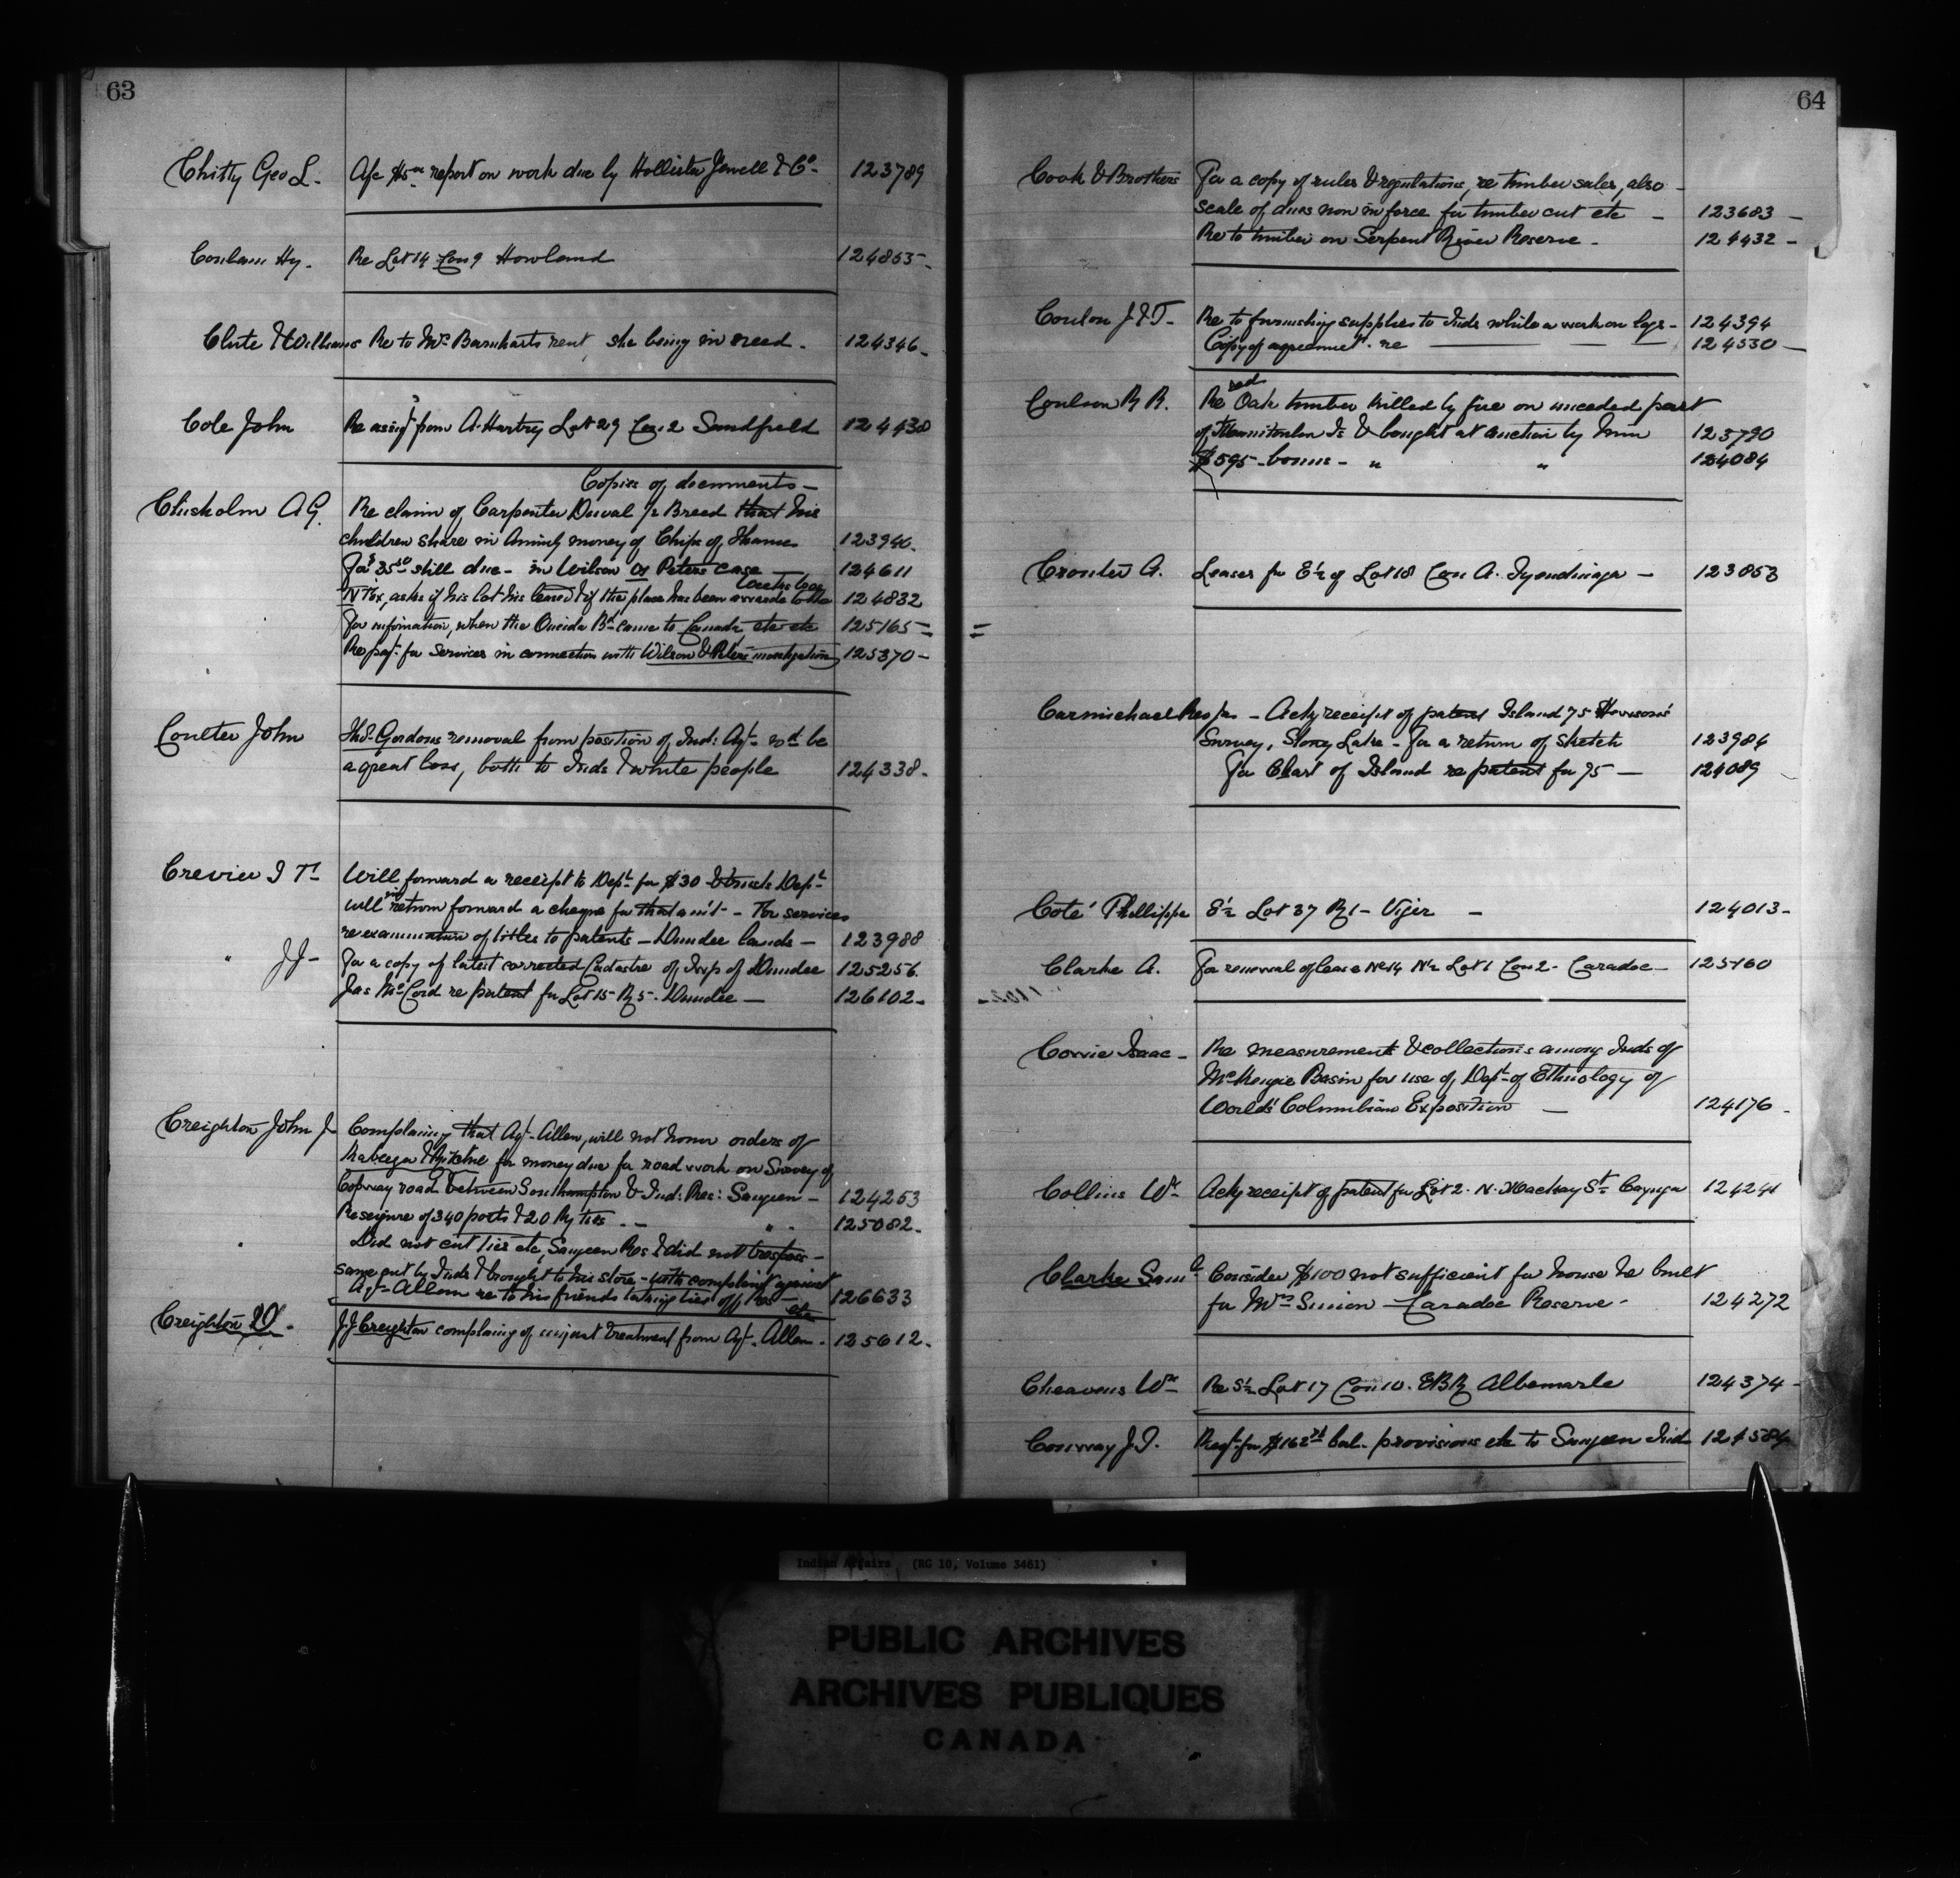 63
Chitty Geo L. A/c $15 report on work due by Hollister Jewell & Co. 123789
Hy. Re Lot 14 Con 9 Howland 124855
Clute & Williams Re to Mrs Barnharts rent, she being in need. 124346
Cole John Re assigt from A. Hartry Lot 29 Con. 2 Sandfield 124430
Copies of documents
Chisholm A G. Re claim of Carpenter Duval ½ Breed that his
children share in Annuity money of Chips of Thames 123940
For $35.50 still due - in Wilson & Peters case 124611
asks if his lot his leased & if the place has been 124832
For information, when the Oneida Bd came to Canada etc etc 125165
Re payt. for services in connection with Wilson & Peters investigation 125370
Coulter John Thos. Gordons removal from position of Ind: Agt. wd be
a great loss, both to Inds & white people 124338
Crevier Will forward a receipt to Dept for $30 & trusts Dept
will in return forward a cheque for that am't - For services
re examination of titles to patents - Dundee lands - 123988
" J J - For a copy of latest corrected Cadastre of Twp of Dundee 125256
Jas McCord re patent for Lot 15 R 5. Dundee - 126102
Creighton John J. Complaining that Agt. Allen, will not honor orders of
for money due for road work on Survey of
Copway road between Southampton & Ind: Res: Saugeen - 124253
Re seizure of 340 posts & 20 Ry ties - " - 125082
Did not cut ties etc, Saugeen Res & did not trespass -
same cut by Inds & brought to his store - with complaint against
Agt. Allen re to his friends taking ties off Res - etc 126633
Creighton J J Creighton complaing of unjust treatment from Agt. Allen. 125612
64
Cook & Brothers For a copy of rules & regulations, re timber sales, also
scale of dues now in force for timber cut etc - 123683
Re to timber on Serpent River Reserve - 124432
J & T. Re to furnishing supplies to Inds while a work on logs - 124394
Copy of agreement - re 124530
Coulson R R. Re red Oak timber killed by fire on unceded part
of Manitoulin Is & bought at auction by him 123790
$595 - bonus - " " 124084
Crouter A. Leases for E½ of Lot 18 Con A. Tyendinaga - 123853
Carmichael - Ackg receipt of patent Island 75
Survey, Stoney Lake - For a return of sketch 123984
For Chart of Island re patent for 75 - 124089
Coté Phillippe E½ Lot 37 R 1 - Viger - 124013
Clarke A. For renewal of lease No 14 N½ Lot 1 Con 2 - Caradoc - 125160
Cowie Isaac - Re measurements & collections among Inds of
McKenzie Basin for use of Dept of Ethnology of
World's Columbian Exposition - 124176
Collins Wm Ackg receipt of patent for Lot 2. N. Mackay St Cayuga 124241
Clarke Saml Consider $100 not sufficient for house he built
for Mrs Simon - Caradoc Reserve - 124272
Cheavens Wm Re S½ Lot 17 Con 10. EBR Albemarle 124374
Conway J. T. for $162 bal. provisions etc to Saugeen Ind 124584
Indian Affairs (RG 10, Volume 3461)
PUBLIC ARCHIVES
ARCHIVES PUBLIQUES
CANADA